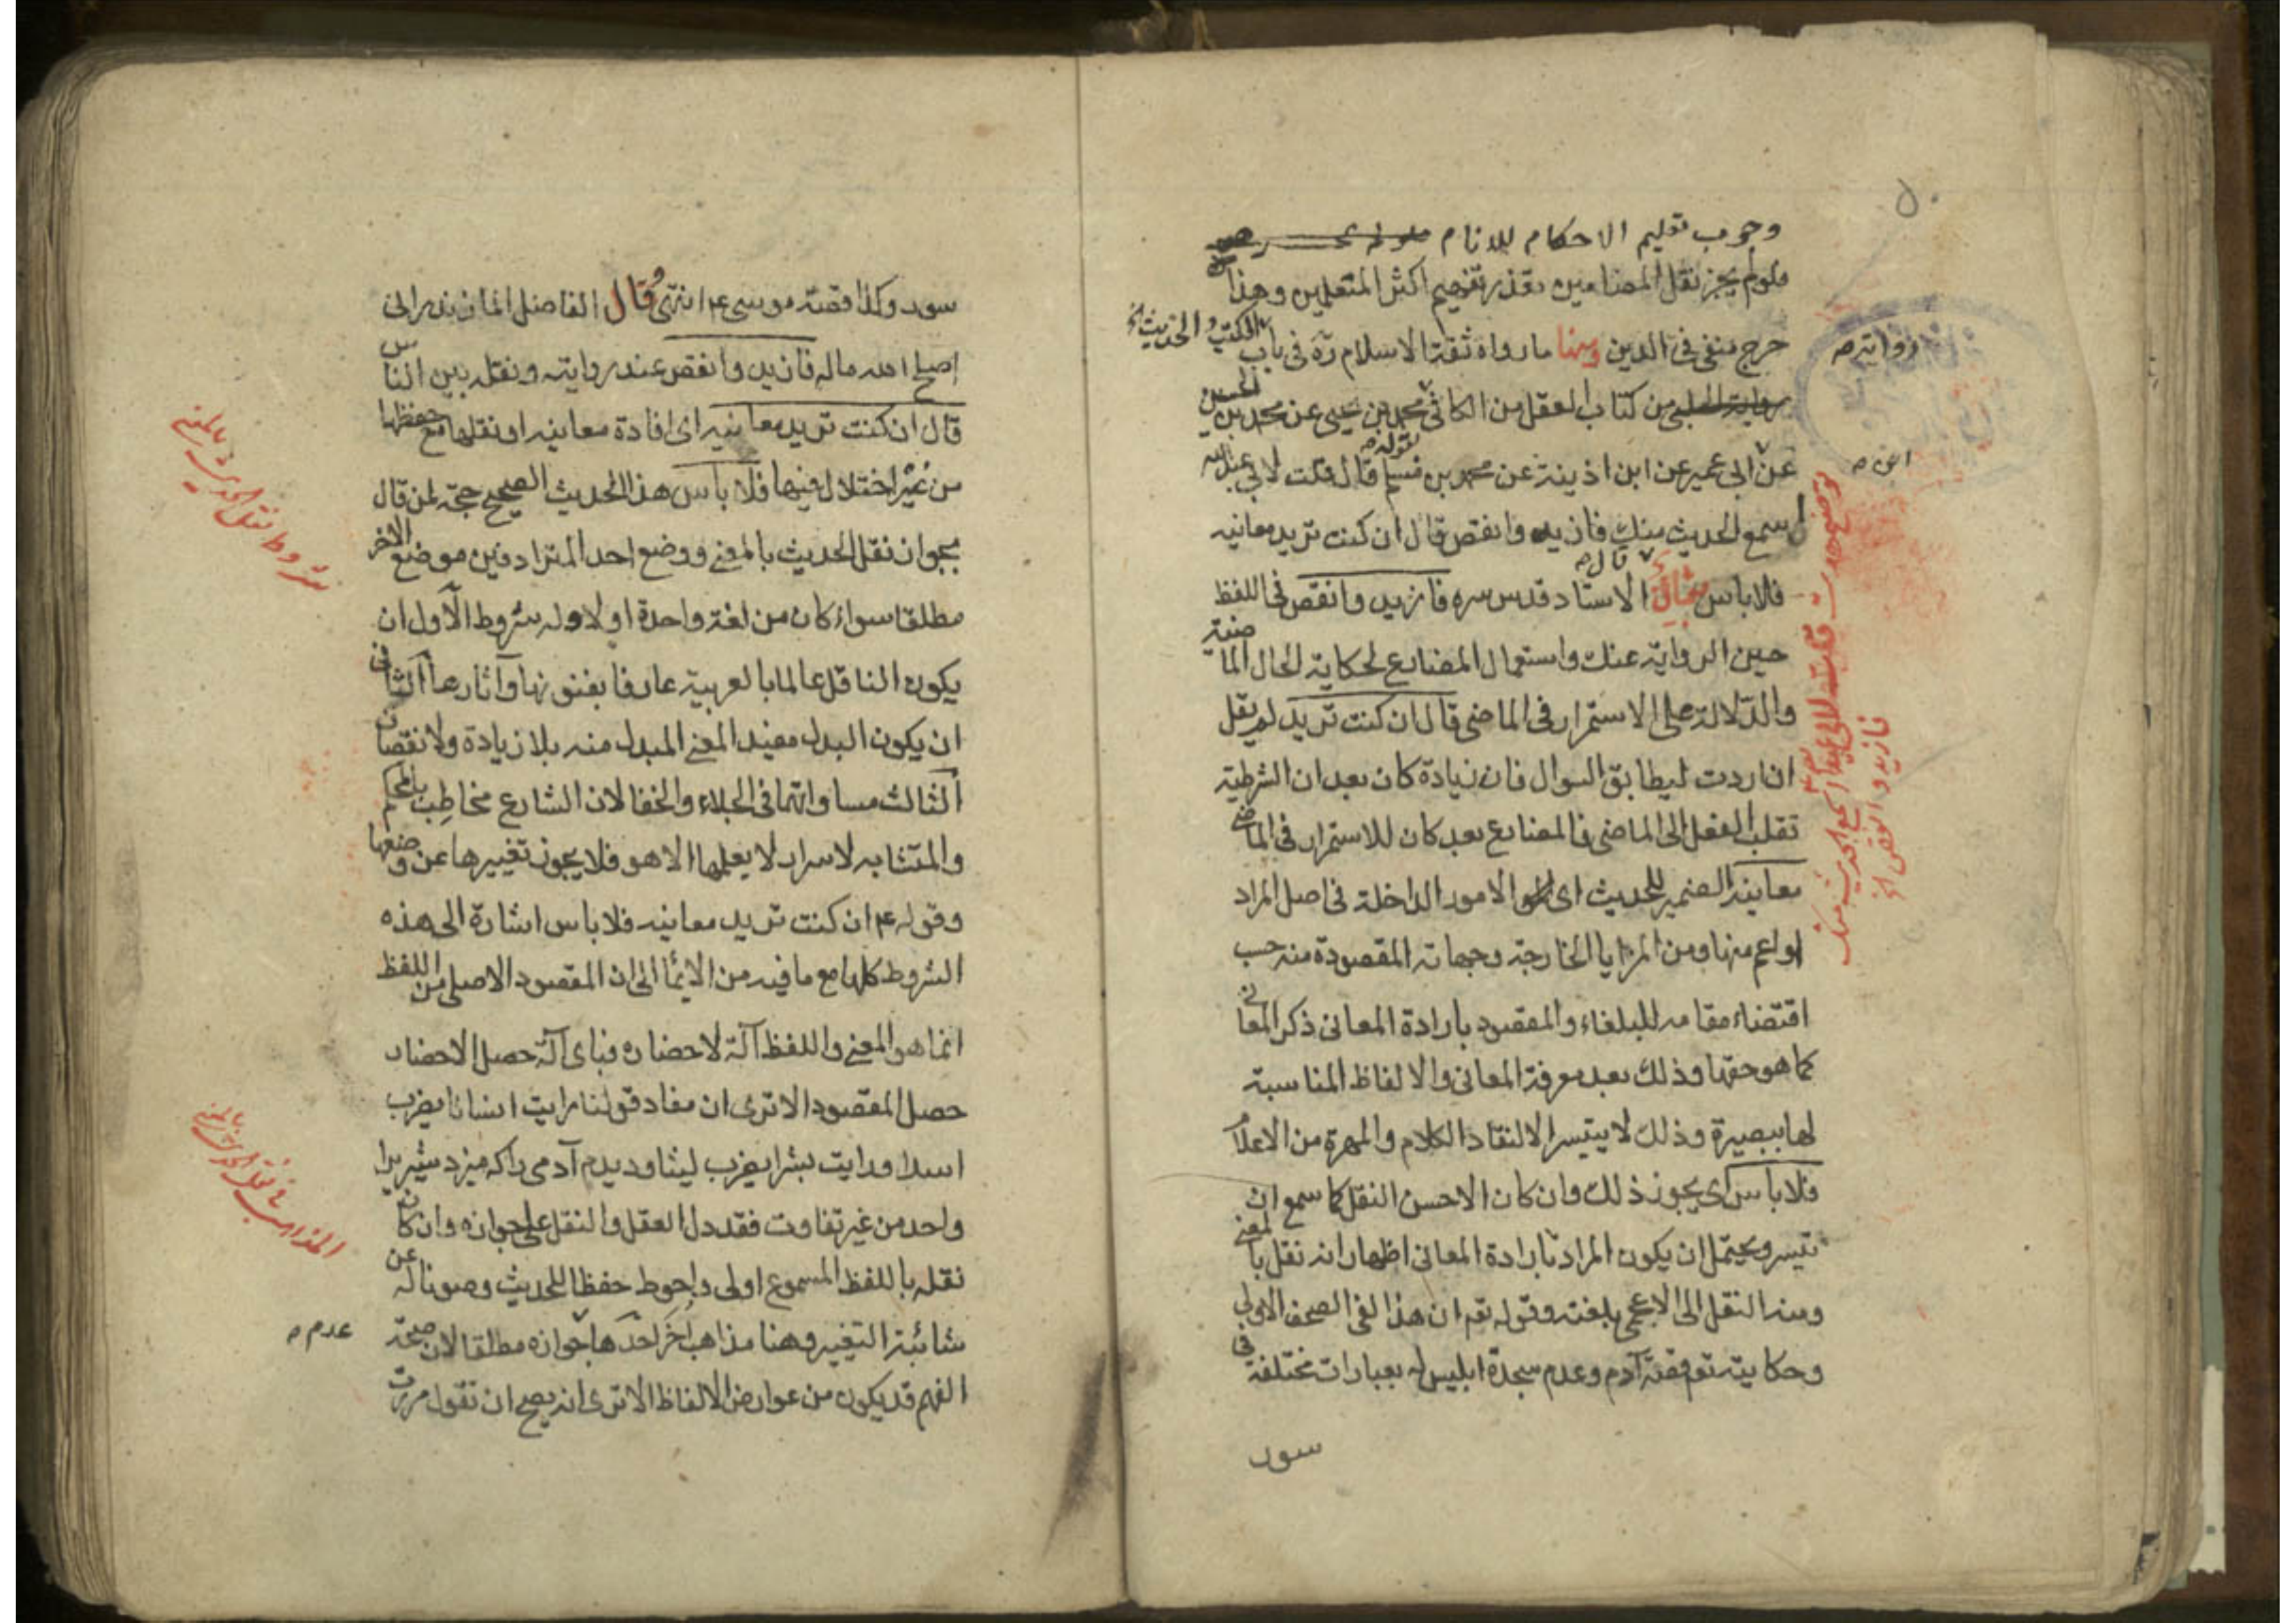 ٥٠
وجوب تعليم الاحكام للانام
فلو لم يجز نقل المضامين تعذر تفهيم اكثر المتعلمين وهذا
حرج منفي في الدين ومنها ما رواه ثقة الاسلام ره في باب
رواية الكتب والحديث
من كتاب العقل من الكافي محمد بن يحيى عن محمد بن الحسين
عن ابن ابي عمير عن ابن اذينة عن محمد بن مسلم قال قلت لابي عبد الله
اسمع الحديث منك فازيد وانقص قال ان كنت تريد معانيه
فلا باس قال الاستاد قدس سره فازيد وانقص في اللفظ
حين الرواية عنك واستعمال المضارع لحكاية الحال الماضية
والدلالة على الاستمرار في الماضي قال ان كنت تريد لم يقل
ان اردت ليطابق السوال فان زيادة كان بعد ان الشرطية
تقلب الفعل الى الماضي فالمضارع بعد كان للاستمرار في الماضي
معانيه الضمير للحديث اى الامور الداخلة في اصل المراد
او اعم منها ومن المزايا الخارجة وجهاته المقصودة منه حسب
اقتضاء مقامه للبلغاء والمقصود بارادة المعاني ذكر المعاني
كما هو حقها وذلك بعد معرفة المعاني والالفاظ المناسبة
لها ببصيرة وذلك لا يتيسر الا لنقاد الكلام والمهرة من الاعلام
فلا باس اى يجوز ذلك وان كان الاحسن النقل كما سمع ان
تيسر ويحتمل ان يكون المراد بارادة المعاني اظهار انه نقل بالمعنى
ومنه النقل الى الاعجمي بلغته وقوله تع ان هذا لفي الصحف الاولى
وحكايته تع قصة آدم وعدم سجدة ابليس له بعبارات مختلفة في
سور
توضيح حديث قلت لابي عبد الله اسمع الحديث منك
فازيد وانقص الخ
سور وكذا قصة موسى ع انتهى وقال الفاضل المازندراني
اصلح الله ماله فازيد وانقص عند روايته ونقله بين الناس
قال ان كنت تريد معانيه اى افادة معانيه او نقلها مع حفظها
من غير اختلال فيها فلا باس هذا الحديث الصحيح حجة لمن قال
بجواز نقل الحديث بالمعنى ووضع احد المترادفين موضع الاخر
مطلقا سواء كان من لغة واحدة او لا وله شروط الاول ان
يكون الناقل عالما بالعربية عارفا بفنونها وآثارها الثاني
ان يكون البدل مفيد المعنى المبدل منه بلا زيادة ولا نقصان
الثالث مساواتهما في الجلاء والخفا لان الشارع مخاطب بالمحكم
والمتشابه لاسرار لا يعلمها الا هو فلا يجوز تغييرها عن وضعها
وقوله ع ان كنت تريد معانيه فلا باس اشارة الى هذه
الشروط كلها مع ما فيه من الايماء الى ان المقصود الاصلي من اللفظ
انما هو المعنى واللفظ آلة لاحضاره فباى آلة حصل الاحضار
حصل المقصود الا ترى ان مفاد قولنا رايت انسانا يضرب
اسدا ورايت بشرا يضرب ليثا وديدم آدمي را كه ميزد شير يرا
واحد من غير تفاوت فقد دل العقل والنقل على جوازه وان كان
نقله باللفظ المسموع اولى واحوط حفظا للحديث وصونا له عن
شائبة التغيير وهنا مذاهب اخر احدها عدم جوازه مطلقا لان صحة
الفهم قد يكون من عوارض الالفاظ الا ترى انه يصح ان تقول مررت
شروط نقل الحديث بالمعنى
المذاهب في نقل الحديث بالمعنى